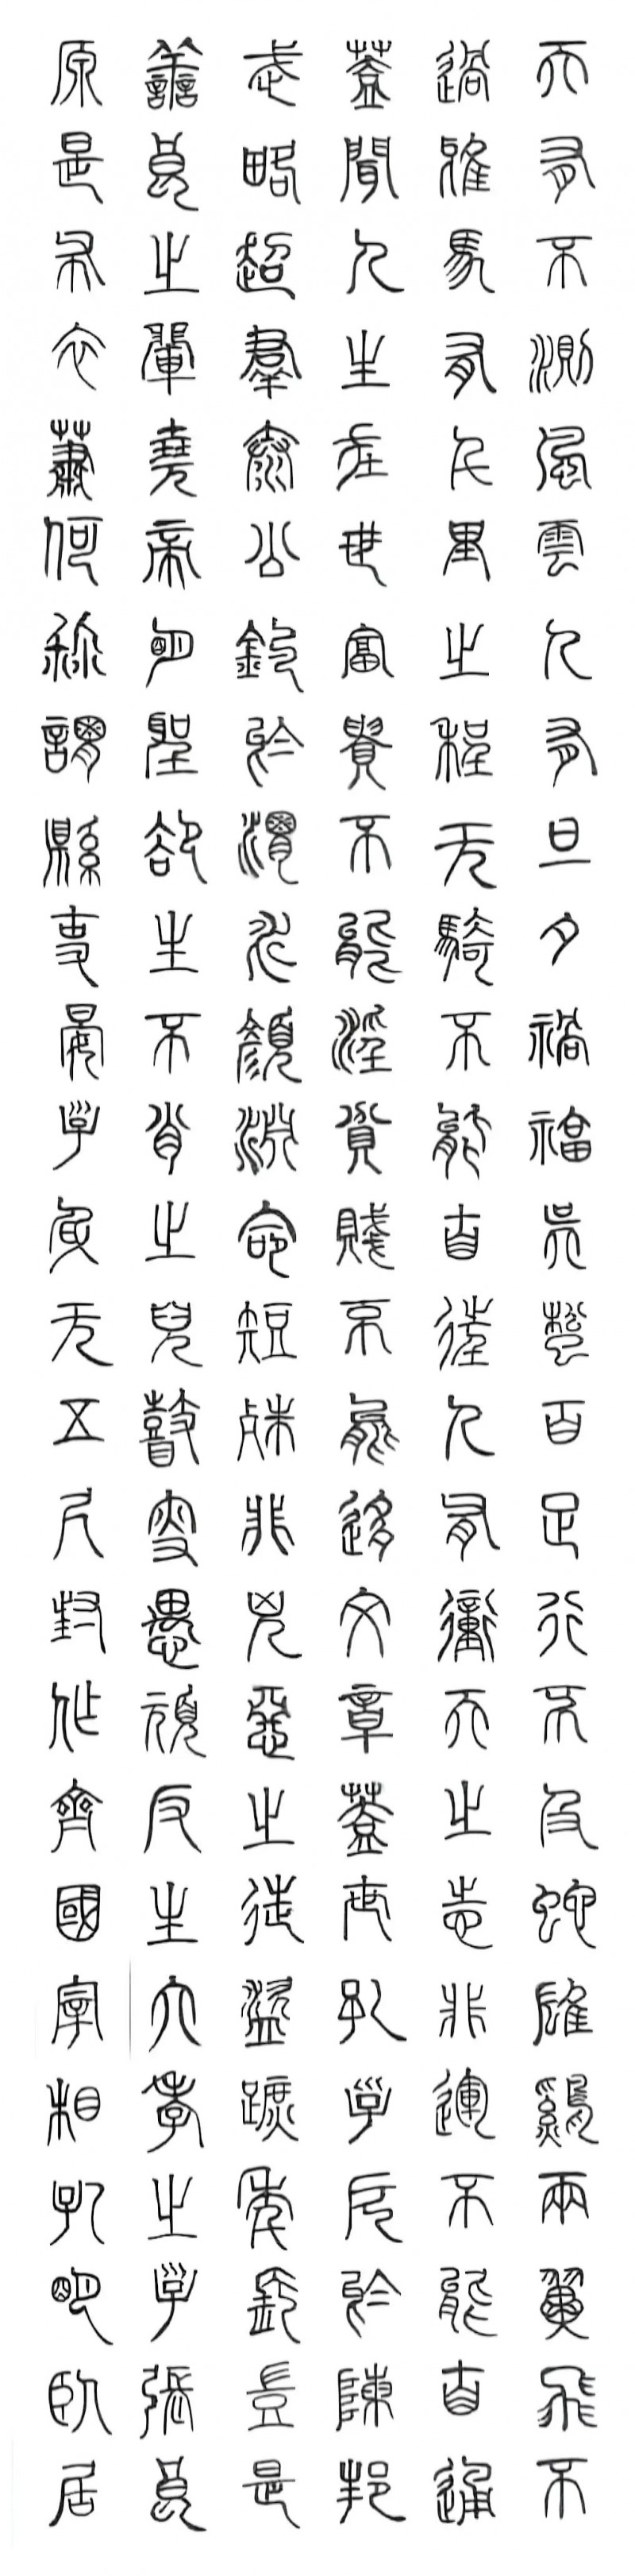 天有不測風雲人有旦夕禍福吳蚣百足行不及蛇雄雞兩翼飛不
過雅馬有千里之程无騎不能自往人有衝天之志非運不能自通
蓋聞人生在世富貴不能淫貧賤不能移文章蓋世孔子厄於陳邦
武略超羣太公釣於渭水顏淵命短殊非兇惡之徒盜蹠年長豈是
善良之輩堯帝明聖卻生不肖之兒瞽叟愚頑反生大孝之子張良
原是布衣蕭何稱謂縣吏晏子身无五尺封作齊國宰相孔明臥居